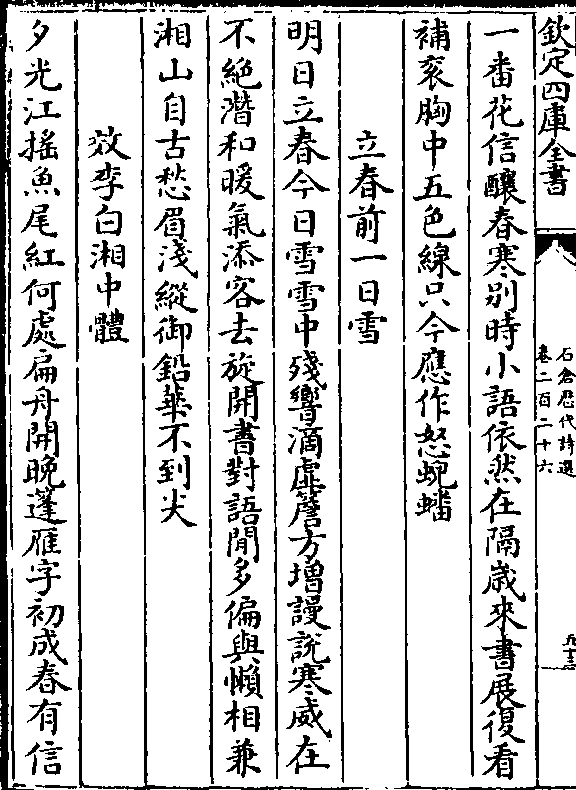 欽定四庫全書
石倉歷代詩選
卷二百二十六
一番花信釀春寒別時小語依然在隔歲來書展復看
補袞胸中五色線只今應作怒蜿蟠
立春前一日雪
明日立春今日雪雪中殘響滴虛簷方增謾說寒威在
不絕潛和暖氣添客去旋開書對語閒多偏與懶相兼
湘山自古愁眉淺縱御鉛華不到尖
效李白湘中體
夕光江搖魚尾紅何處扁舟開晚蓬雁字初成春有信